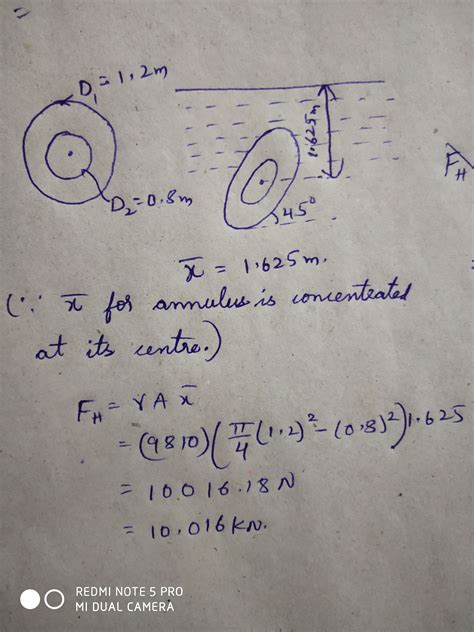 =
D₁ = 1.2m
1.625m
F_H
D₂=0.8m
45°
x̄ = 1.625m.
(∵ x̄ for annulus is concentrated
at its centre.)
F_H = γ A x̄
= (9810)(π/4(1.2)² - (0.8)²)1.625
= 10016.18N
= 10.016KN.
REDMI NOTE 5 PRO
MI DUAL CAMERA